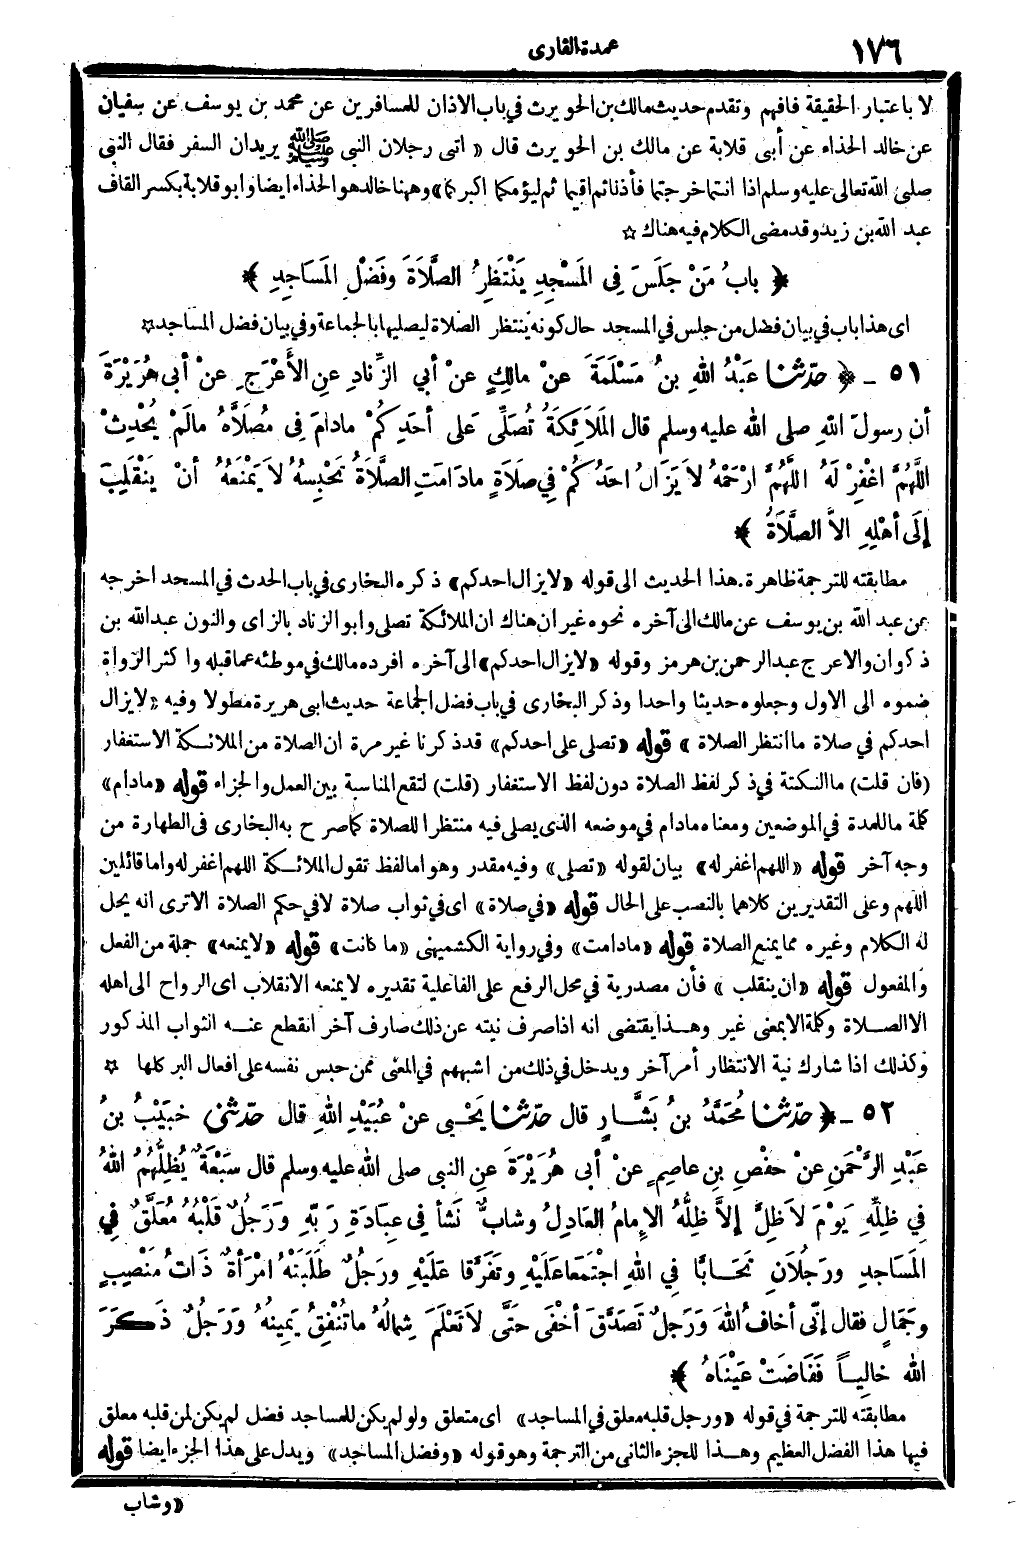 ١٧٦
عمدة القارى
لا باعتبار الحقيقة فافهم وتقدم حديث مالك بن الحويرث في باب الاذان للمسافرين عن محمد بن يوسف عن سفيان
عن خالد الحذاء عن أبى قلابة عن مالك بن الحويرث قال « اتى رجلان النبى ﷺ يريدان السفر فقال النبى
صلى الله تعالى عليه وسلم اذا انتما خرجتما فأذنا ثم اقيما ثم ليؤمكما اكبركما» وههنا خالد هو الحذاء ايضا وابو قلابة بكسر القاف
عبد الله بن زيد وقد مضى الكلام فيه هناك ☆
﴿ بابُ مَنْ جَلَسَ فِى المَسْجِدِ يَنْتَظِرُ الصَّلَاةَ وفَضْلِ المَسَاجِدِ ﴾
اى هذا باب في بيان فضل من جلس في المسجد حال كونه ينتظر الصلاة ليصليها بالجماعة وفي بيان فضل المساجد ☆
٥١ ـ ﴿ حدّثنا عَبْدُ اللهِ بنُ مَسْلَمَةَ عَنْ مالِكٍ عَنْ أبي الزِّنادِ عنِ الأَعْرَجِ عنْ أبى هُرَيْرَةَ
أن رسولَ اللهِ صلى الله عليه وسلم قال المَلَائِكَةُ تُصَلِّى عَلى أحَدِكُمْ مادامَ فِى مُصَلَّاهُ مالَمْ يُحْدِثْ
اللَّهُمَّ اغْفِرْ لَهُ اللَّهُمَّ ارْحَمْهُ لاَ يَزَالُ احَدُكُمْ فِي صَلَاةٍ مادَامَتِ الصَّلَاةُ تَحْبِسُهُ لاَ يَمْنَعُهُ أنْ يَنْقَلِبَ
إِلَى أهْلِهِ الاَّ الصَّلَاةُ ﴾
مطابقته للترجمة ظاهرة. هذا الحديث الى قوله «لا يزال احدكم» ذكره البخارى في باب الحدث في المسجد اخرجه
عن عبد الله بن يوسف عن مالك الى آخره نحوه غير ان هناك ان الملائكة تصلى وابو الزناد بالزاى والنون عبد الله بن
ذكوان والاعرج عبد الرحمن بن هرمز وقوله «لا يزال احدكم» الى آخره افرده مالك في موطئه عما قبله واكثر الرواة
ضموه الى الاول وجعلوه حديثا واحدا وذكر البخارى في باب فضل الجماعة حديث ابى هريرة مطولا وفيه «لا يزال
احدكم في صلاة ما انتظر الصلاة » قوله «تصلى على احدكم» قد ذكرنا غير مرة ان الصلاة من الملائكة الاستغفار
(فان قلت) ما النكتة في ذكر لفظ الصلاة دون لفظ الاستغفار (قلت) لتقع المناسبة بين العمل والجزاء قوله «مادام»
كلمة ما للمدة في الموضعين ومعناه مادام في موضعه الذى يصلى فيه منتظرا للصلاة كما صرح به البخارى فى الطهارة من
وجه آخر قوله «اللهم اغفر له» بيان لقوله «تصلى» وفيه مقدر وهو اما لفظ تقول الملائكة اللهم اغفر له واما قائلين
اللهم وعلى التقديرين كلاهما بالنصب على الحال قوله «في صلاة» اى في ثواب صلاة لا في حكم الصلاة الا ترى انه يحل
له الكلام وغيره مما يمنع الصلاة قوله «مادامت» وفي رواية الكشميهنى «ما كانت» قوله «لا يمنعه» جملة من الفعل
والمفعول قوله «ان ينقلب » فأن مصدرية في محل الرفع على الفاعلية تقديره لا يمنعه الانقلاب اى الرواح الى اهله
الا الصلاة وكلمة الا بمعنى غير وهذا يقتضى انه اذا صرف نيته عن ذلك صارف آخر انقطع عنه الثواب المذكور
وكذلك اذا شارك نية الانتظار أمر آخر ويدخل في ذلك من اشبههم في المعنى ممن حبس نفسه على افعال البر كلها ☆
٥٢ ـ ﴿ حدّثنا مُحَمَّدُ بنُ بَشَّارٍ قال حدّثنا يَحْيى عنْ عُبَيْدِ اللهِ قال حدّثنى خُبَيْبُ بنُ
عَبْدِ الرَّحْمنِ عنْ حفْصِ بنِ عاصِمٍ عنْ أبى هُرَيْرَةَ عنِ النبى صلى الله عليه وسلم قال سَبْعَةٌ يُظِلُّهُمُ اللهُ
فِي ظِلِّهِ يَوْمَ لاَ ظِلَّ إلاَّ ظِلُّهُ الإِمامُ العَادِلُ وشابٌّ نَشَأَ فِى عِبادَةِ رَبِّهِ وَرَجُلٌ قَلْبُهُ مُعَلَّقٌ فِي
المَسَاجِدِ ورَجُلاَنِ تَحَابَّا فِي اللهِ اجْتَمَعا عَلَيْهِ وتَفَرَّقا عَلَيْهِ ورَجُلٌ طَلَبَتْهُ امْرَأةٌ ذَاتُ مَنْصِبٍ
وجَمَالٍ فقال إنّى أخافُ اللهَ وَرَجلٌ تَصَدَّقَ أخْفَى حَتَّى لاَ تَعْلَمَ شِمالُهُ ماتُنْفِقُ يَمِينُهُ وَرَجُلٌ ذَكَرَ
اللهَ خالِياً فَفَاضَتْ عَيْنَاهُ ﴾
مطابقته للترجمة في قوله «ورجل قلبه معلق في المساجد» اى متعلق ولو لم يكن للمساجد فضل لم يكن لمن قلبه معلق
فيها هذا الفضل العظيم وهذا للجزء الثانى من الترجمة وهو قوله «وفضل المساجد» ويدل على هذا الجزء ايضا قوله
«وشاب